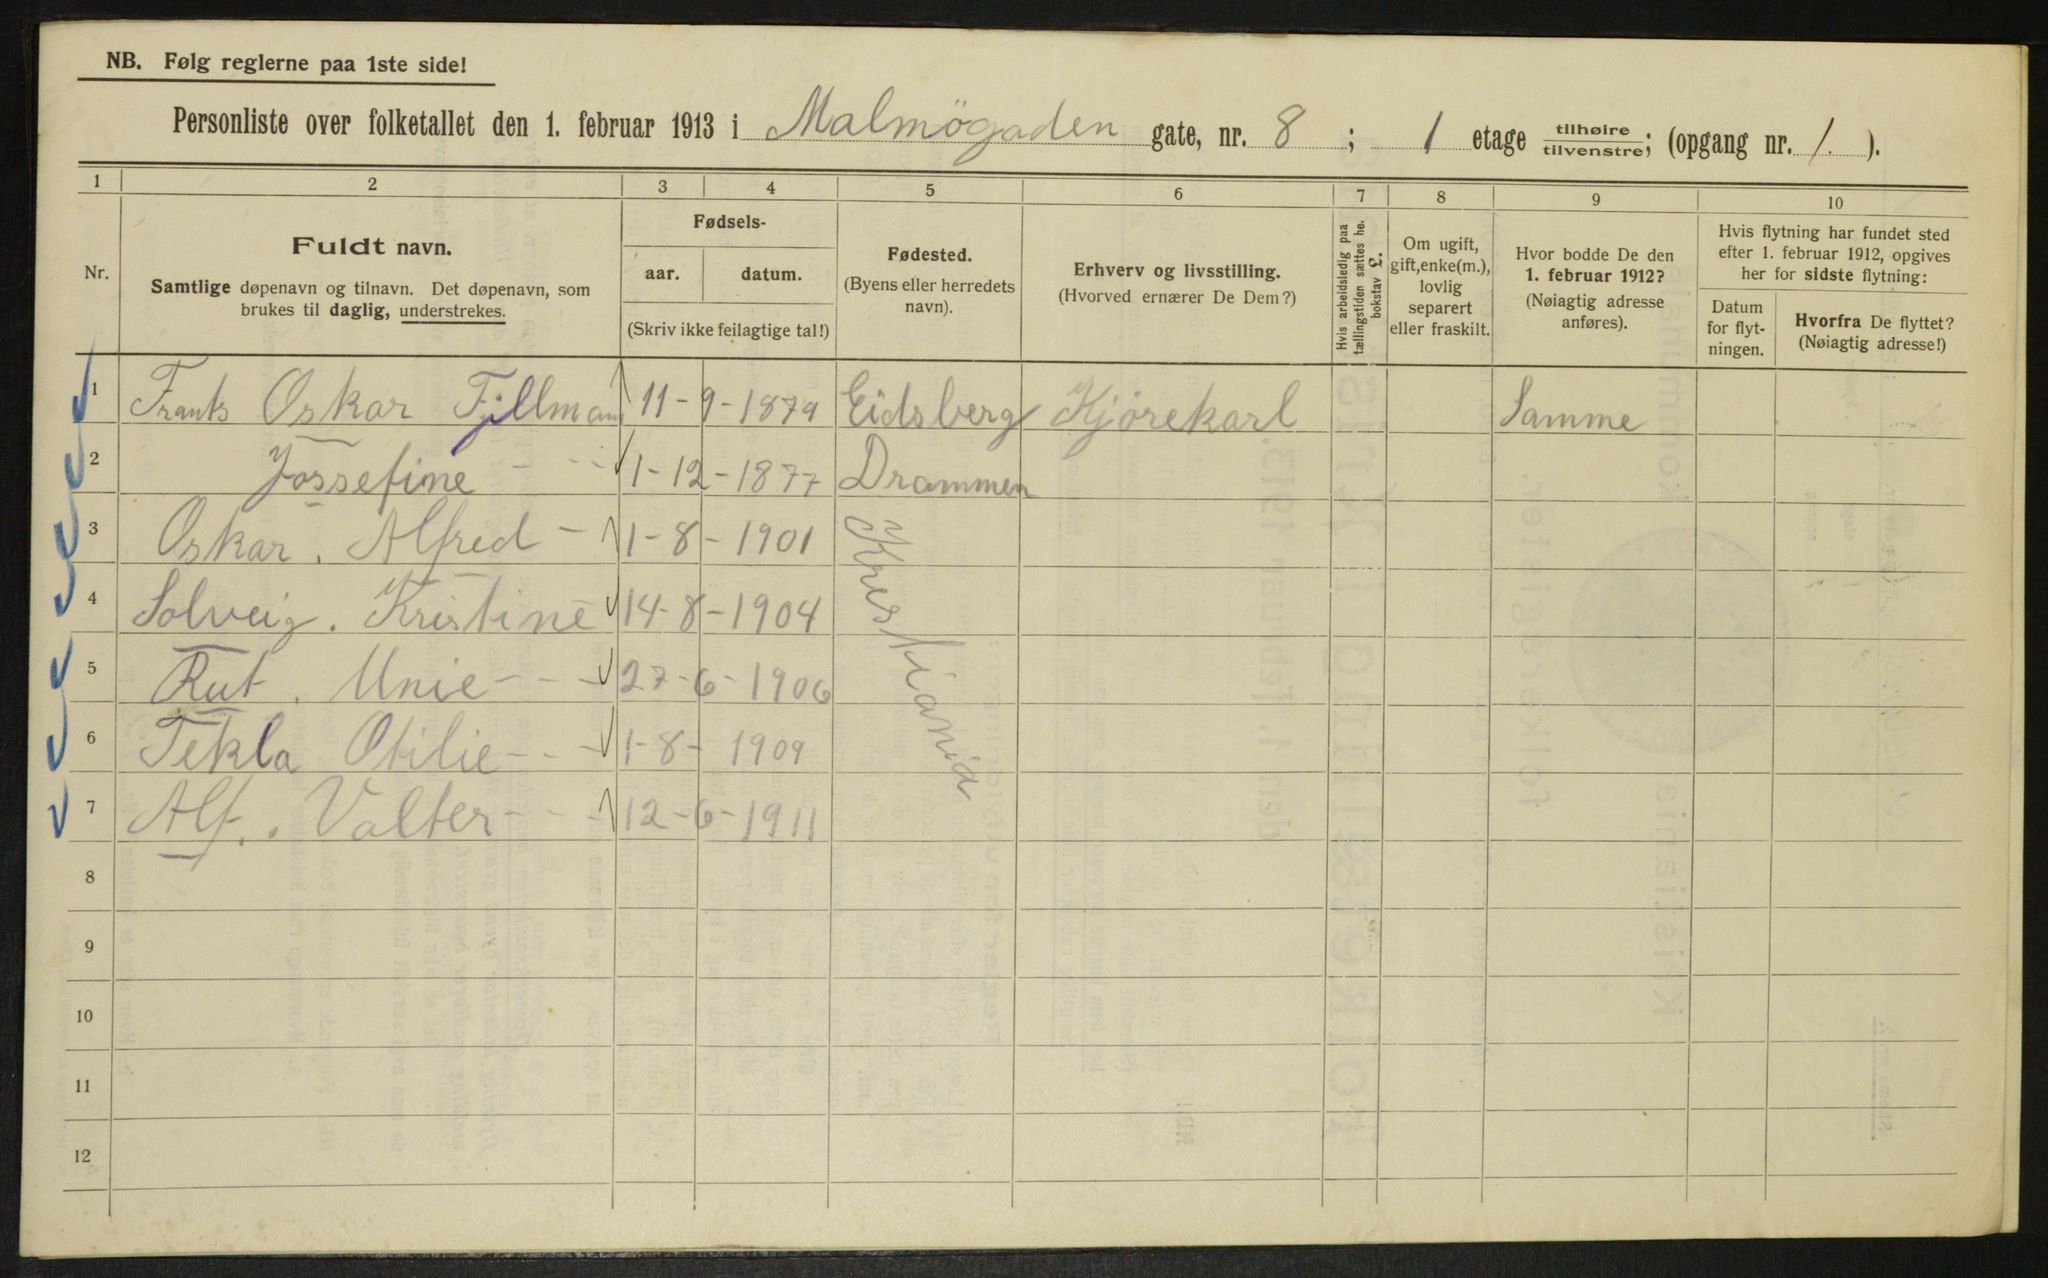 NB. Følg reglerne paa 1ste side!
Personliste over folketallet den 1. februar 1913 i Malmögaden gate, nr. 8 ; 1 etage tilhøire tilvenstre; (opgang nr. 1. ).
1 2 3 4 5 6 7 8 9 10
Nr.
Fuldt navn.
Samtlige døpenavn og tilnavn. Det døpenavn, som
brukes til daglig, understrekes.
Fødsels-
aar. datum.
(Skriv ikke feilagtige tal!)
Fødested.
(Byens eller herredets
navn).
Erhverv og livsstilling.
(Hvorved ernærer De Dem?)
Hvis arbeidsledig paa
tællingstiden sættes he.
bokstav L.
Om ugift,
gift, enke(m.),
lovlig
separert
eller fraskilt.
Hvor bodde De den
1. februar 1912?
(Nøiagtig adresse
anføres).
Hvis flytning har fundet sted
efter 1. februar 1912, opgives
her for sidste flytning:
Datum
for flyt-
ningen.
Hvorfra De flyttet?
(Nøiagtig adresse!)
1 Frants Oskar Fjillman 11-9-1879 Eidsberg Kjörekarl Samme
2 Jossefine - - - 1-12-1877 Drammen
3 Oskar. Alfred - 1-8-1901 Kristiania
4 Solveig. Kristine 14-8-1904
5 Rut. Unie - - - 27-6-1906
6 Tekla Otilie - - - 1-8-1909
7 Alf. Valter - - - 12-6-1911
8
9
10
11
12